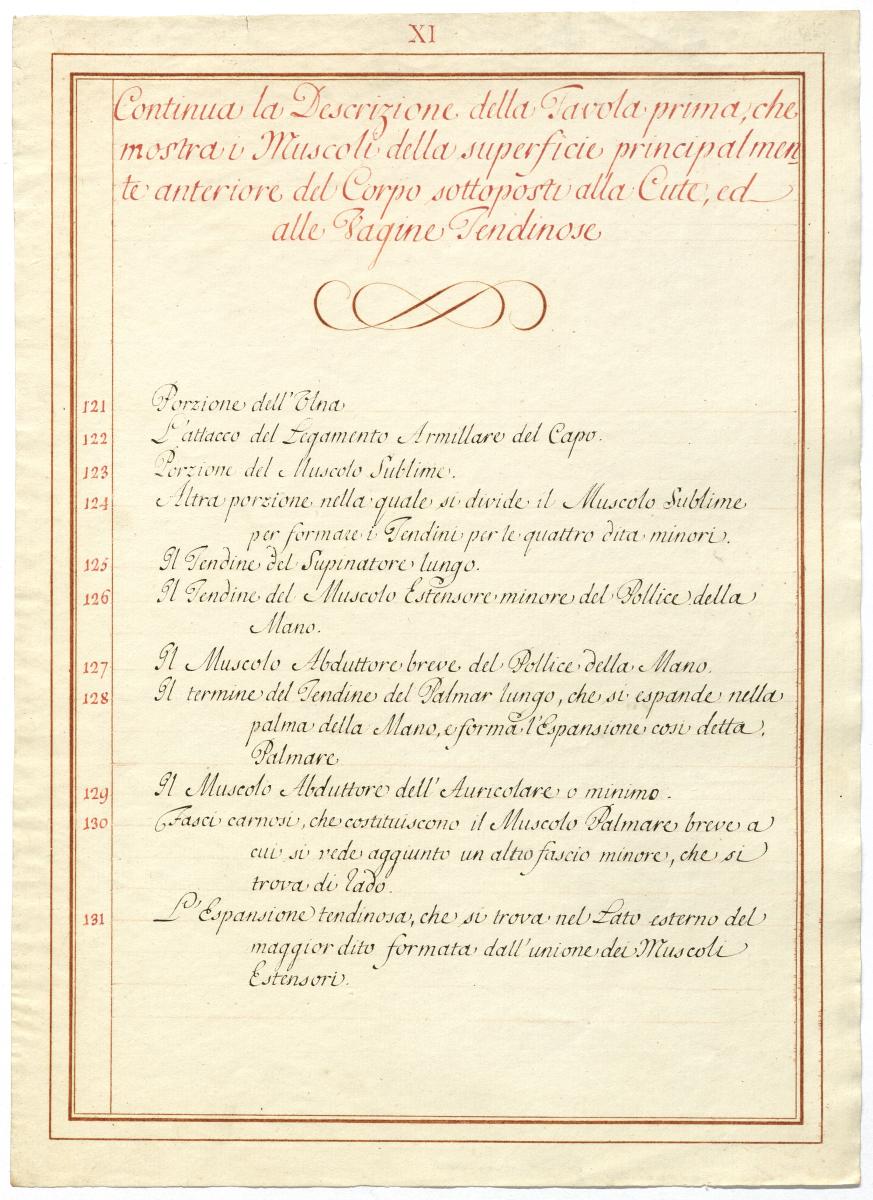 XI
Continua la Descrizione della Tavola prima, che
mostra i Muscoli della superficie principalmen-
te anteriore del Corpo sottoposti alla Cute, ed
alle Vagine Tendinose
121 Porzione dell'Ulna
122 L'attacco del Legamento Armillare del Capo.
123 Porzione del Muscolo Sublime.
124 Altra porzione nella quale si divide il Muscolo Sublime
per formare i Tendini per le quattro dita minori.
125 Il Tendine del Supinatore lungo.
126 Il Tendine del Muscolo Estensore minore del Pollice della
Mano.
127 Il Muscolo Abduttore breve del Pollice della Mano.
128 Il termine del Tendine del Palmar lungo, che si espande nella
palma della Mano, e forma l'Espansione così detta,
Palmare
129 Il Muscolo Abduttore dell'Auricolare o minimo.
130 Fasci carnosi, che costituiscono il Muscolo Palmare breve a
cui si vede aggiunto un altro fascio minore, che si
trova di lado.
131 L'Espansione tendinosa, che si trova nel Lato esterno del
maggior dito formata dall'unione dei Muscoli
Estensori.